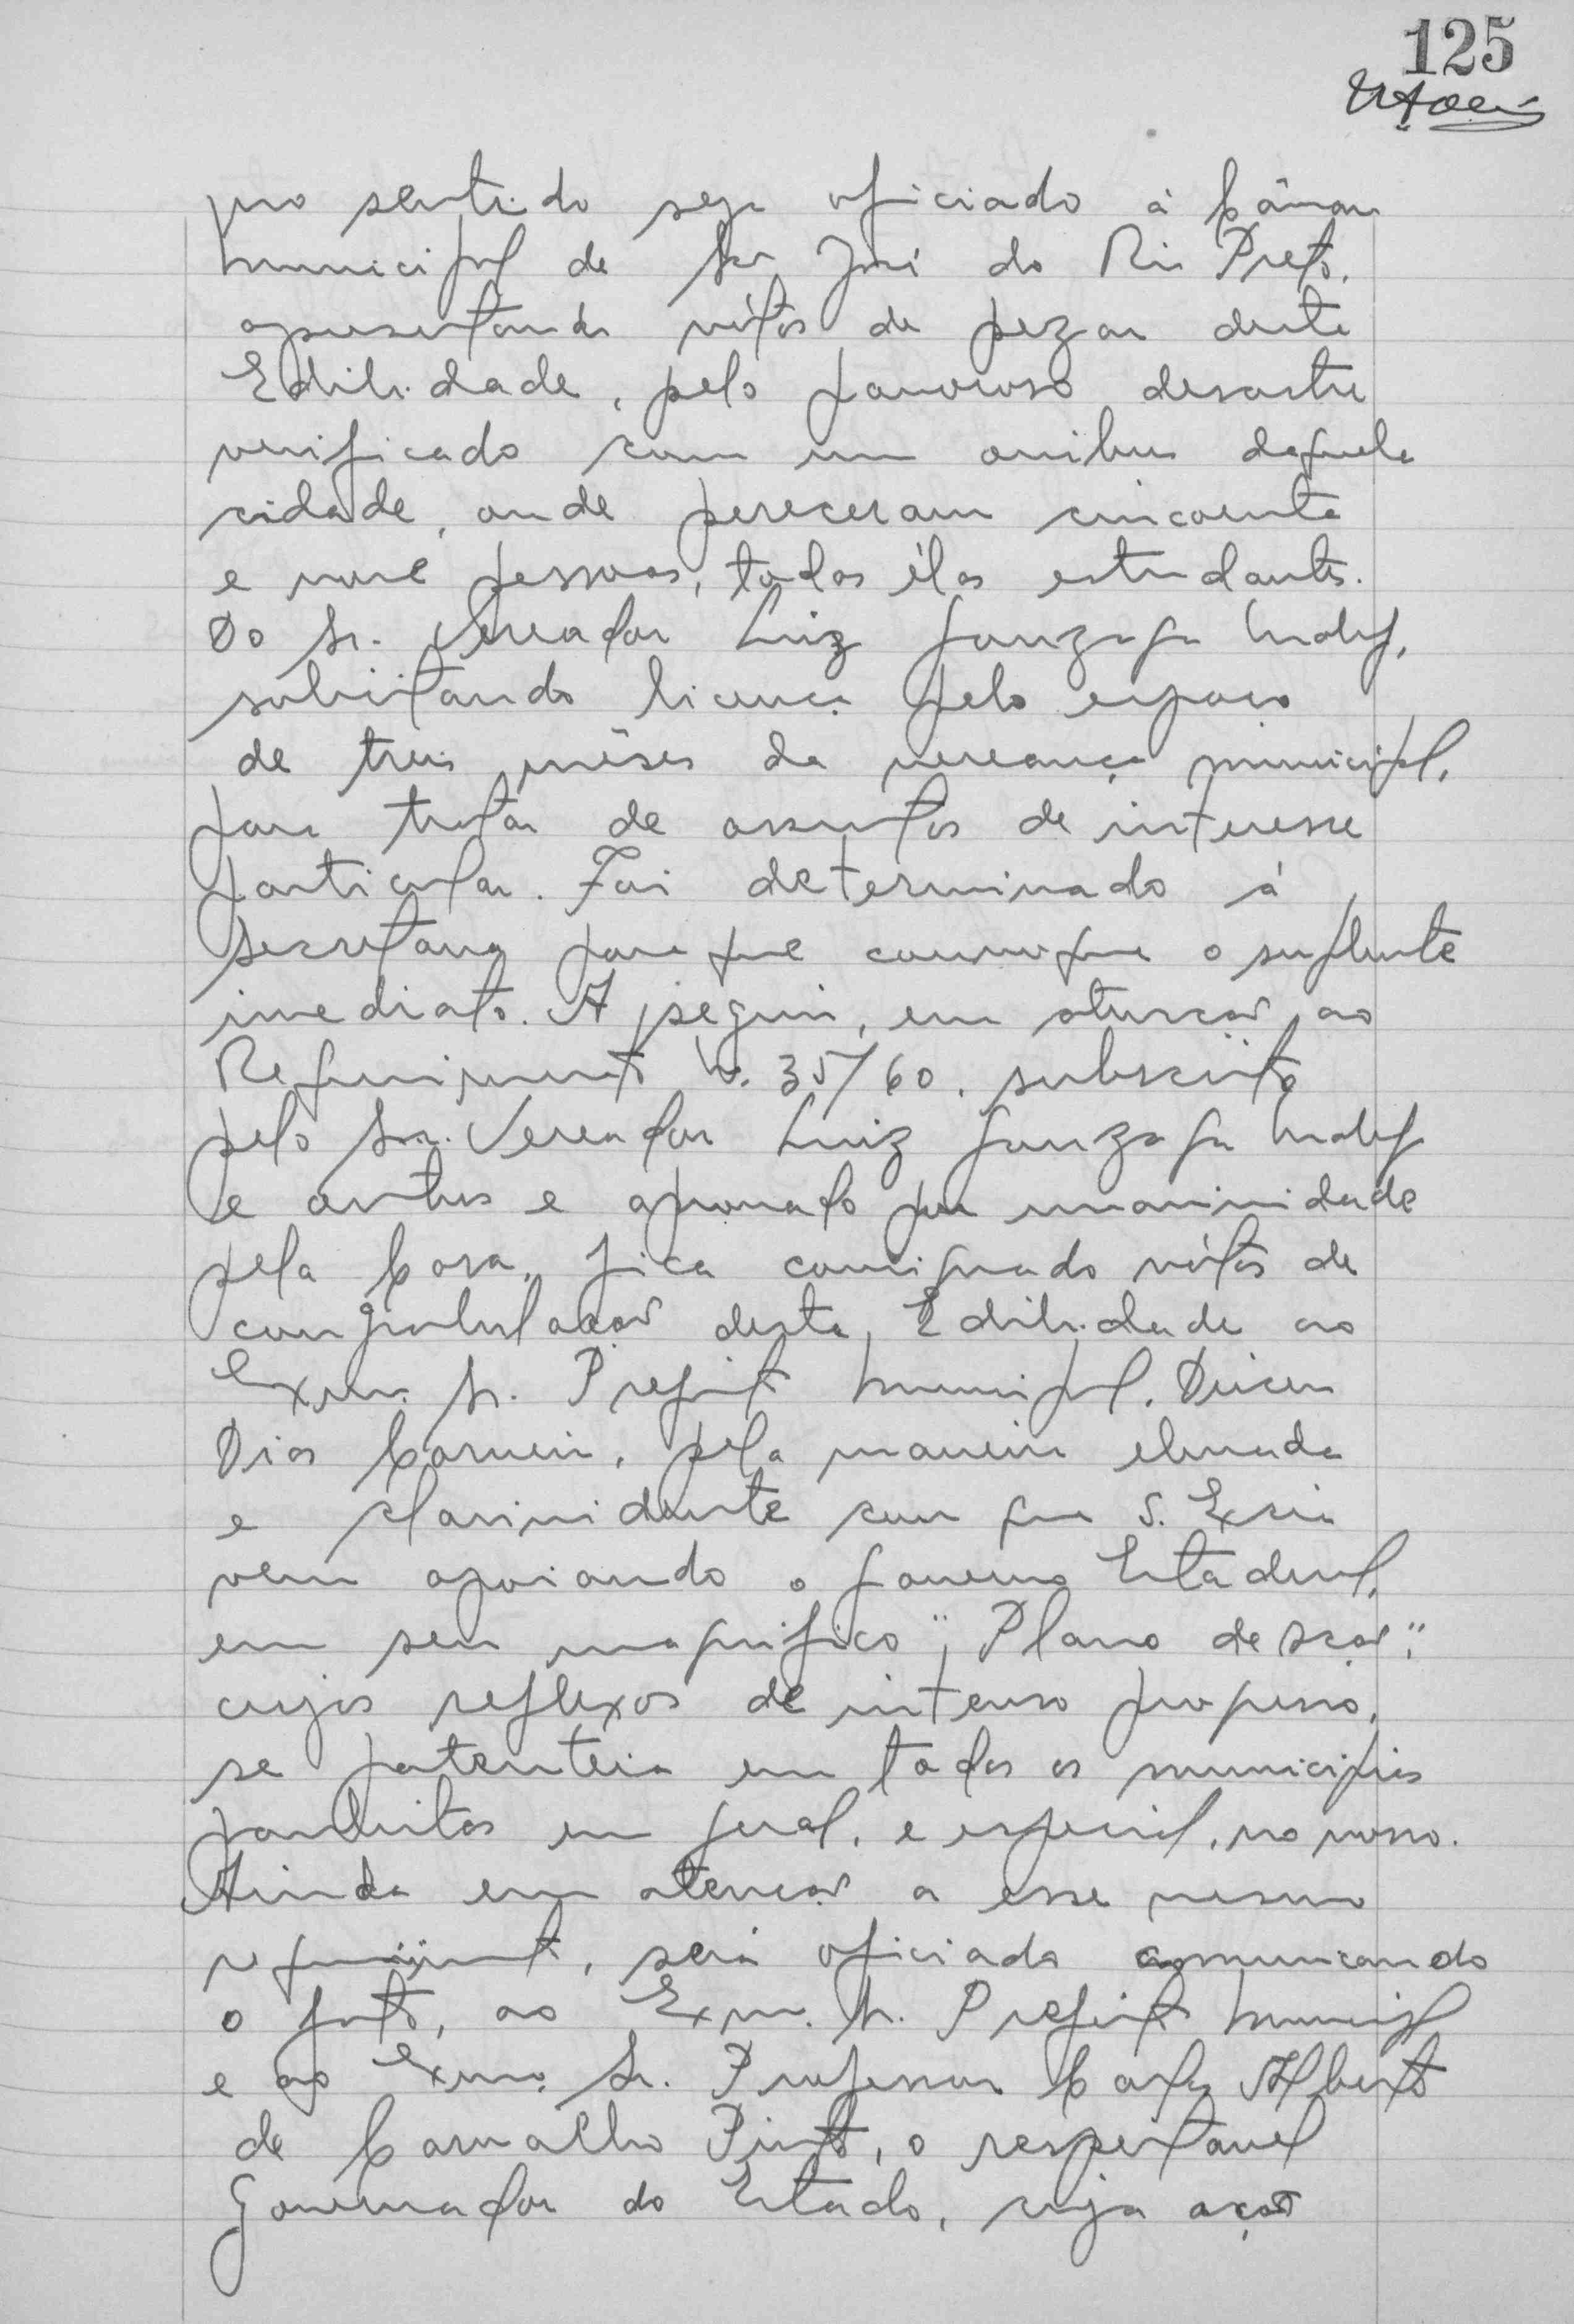 125
no sentido seja oficiado á Câmara
Municipal de São José do Rio Preto,
apresentando vótos de pezar desta
Edilidade, pelo pavoroso desastre
verificado com um onibus daquela
cidade, onde pereceram cincoenta
e nove pessoas, todas élas estudantes.
Do Sr. Vereador Luiz Gonzaga
solicitando licença pelo espaço
de treis mêses da vereança municipal,
para tratar de assuntos de interesse
particular. Foi determinado á
Secretaria para que convoque o suplente
imediato. A seguir, em atenção ao
Requerimento N. 35/60, subscrito
pelo Sr. Vereador Luiz Gonzaga
e outros e aprovado por unanimidade
pela Casa, fica consignado vótos de
congratulações desta Edilidade ao
Exmo. Sr. Prefeito Municipal, Dirceu
Dias Carneiro, pela maneira elevada
e clarividente com que S. Excia
vem apoiando o Governo Estadual,
em seu magnifico "Plano de Ação",
cujos reflexos de intenso progresso,
se patenteia em todos os municipios
paulistas em geral, e especial, no nosso.
Ainda em atenção a esse mesmo
requerimento, será oficiado comunicando
o fato, ao Exmo. Sr. Prefeito Municipal
e ao Exmo. Sr. Professor Carlos Alberto
de Carvalho Pinto, o respeitavel
Governador do Estado, cuja ação